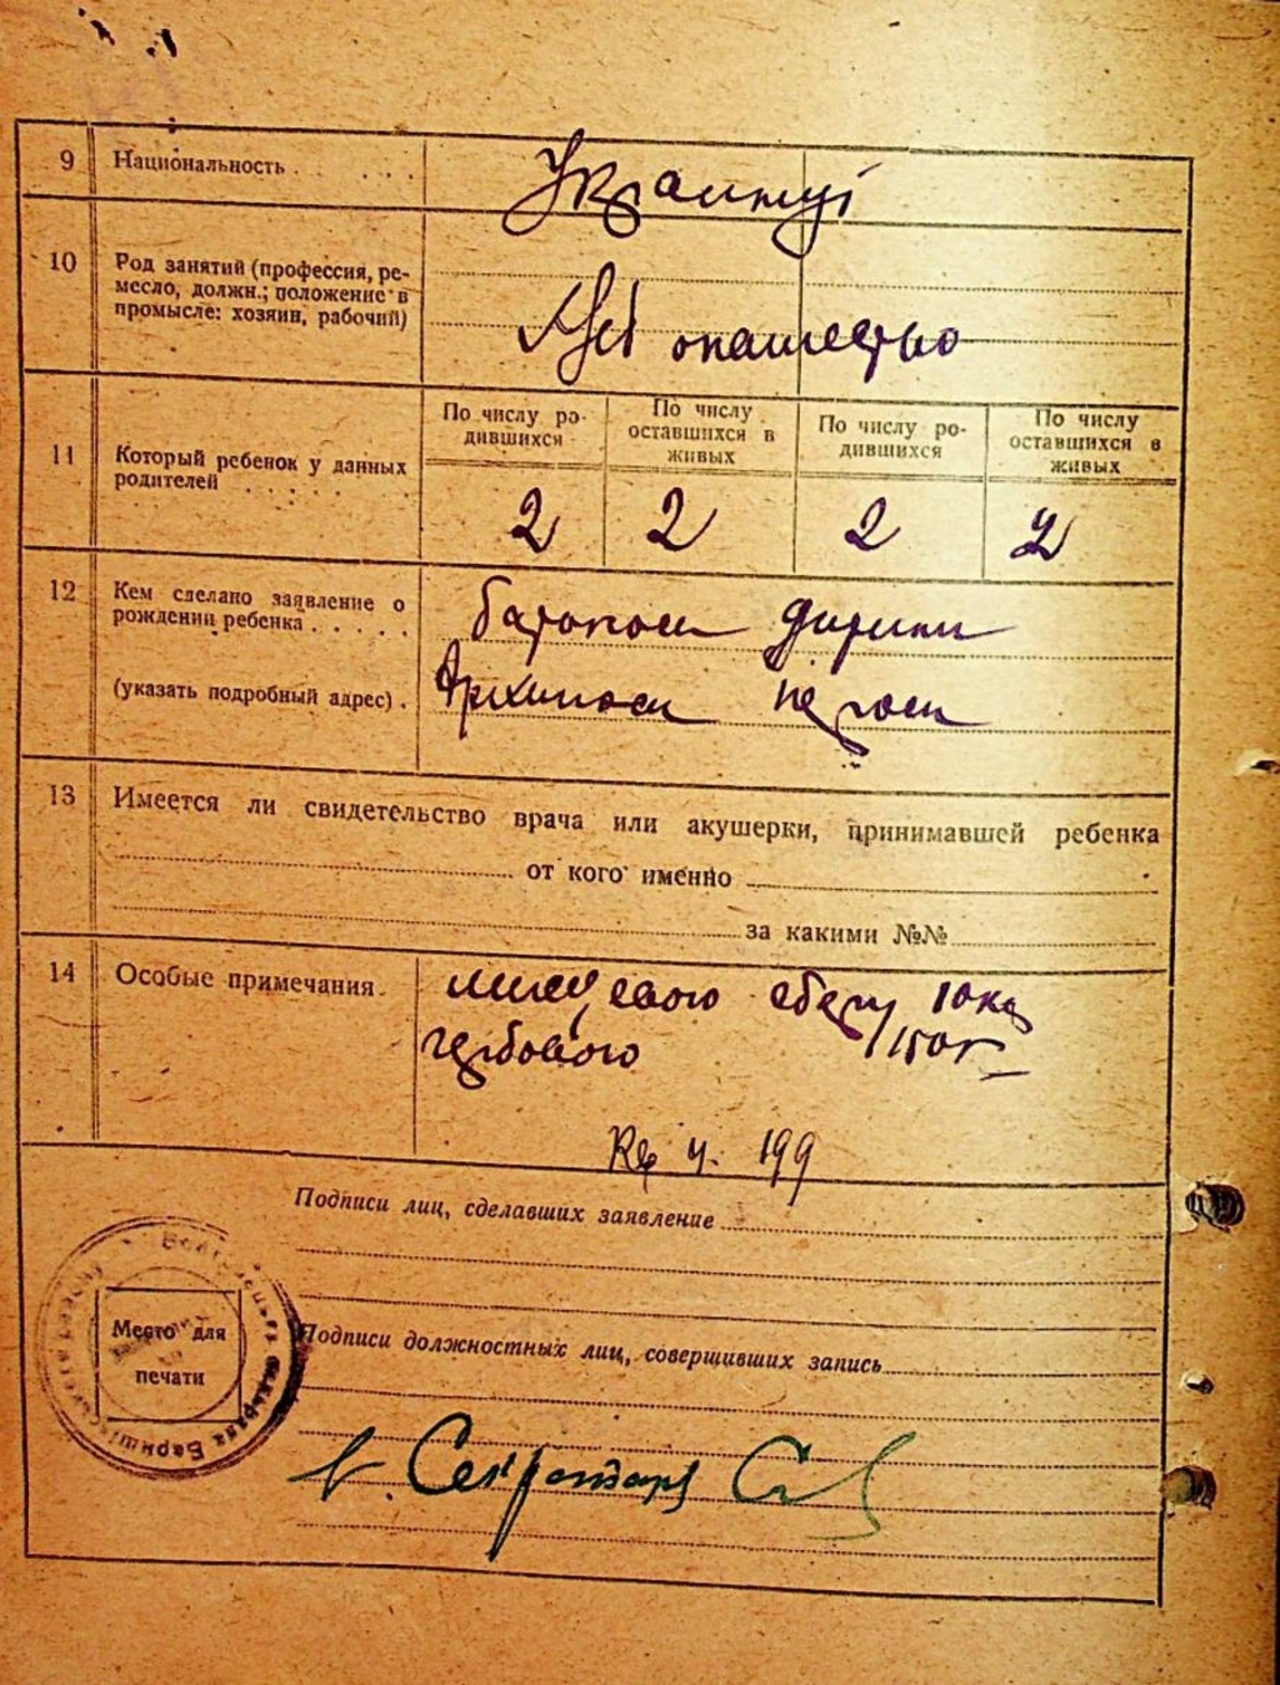 9 Национальность . . . . .
Українці
10 Род занятий (профессия, ре-
месло, должн.; положение в
промысле: хозяин, рабочий)
11 Который ребенок у данных
родителей . . . . .
По числу ро-
дившихся
По числу
оставшихся в
живых
По числу ро-
дившихся
По числу
оставшихся в
живых
2 2 2 2
12 Кем сделано заявление о
рождении ребенка . . . . .
(указать подробный адрес) .
батьком дитини
13 Имеется ли свидетельство врача или акушерки, принимавшей ребенка
от кого именно
за какими №№
14 Особые примечания
місцевого збору 10к
гербового 150
Кв ч. 199
Подписи лиц, сделавших заявление
Место для
печати
Подписи должностных лиц, совершивших запись
Секретарь